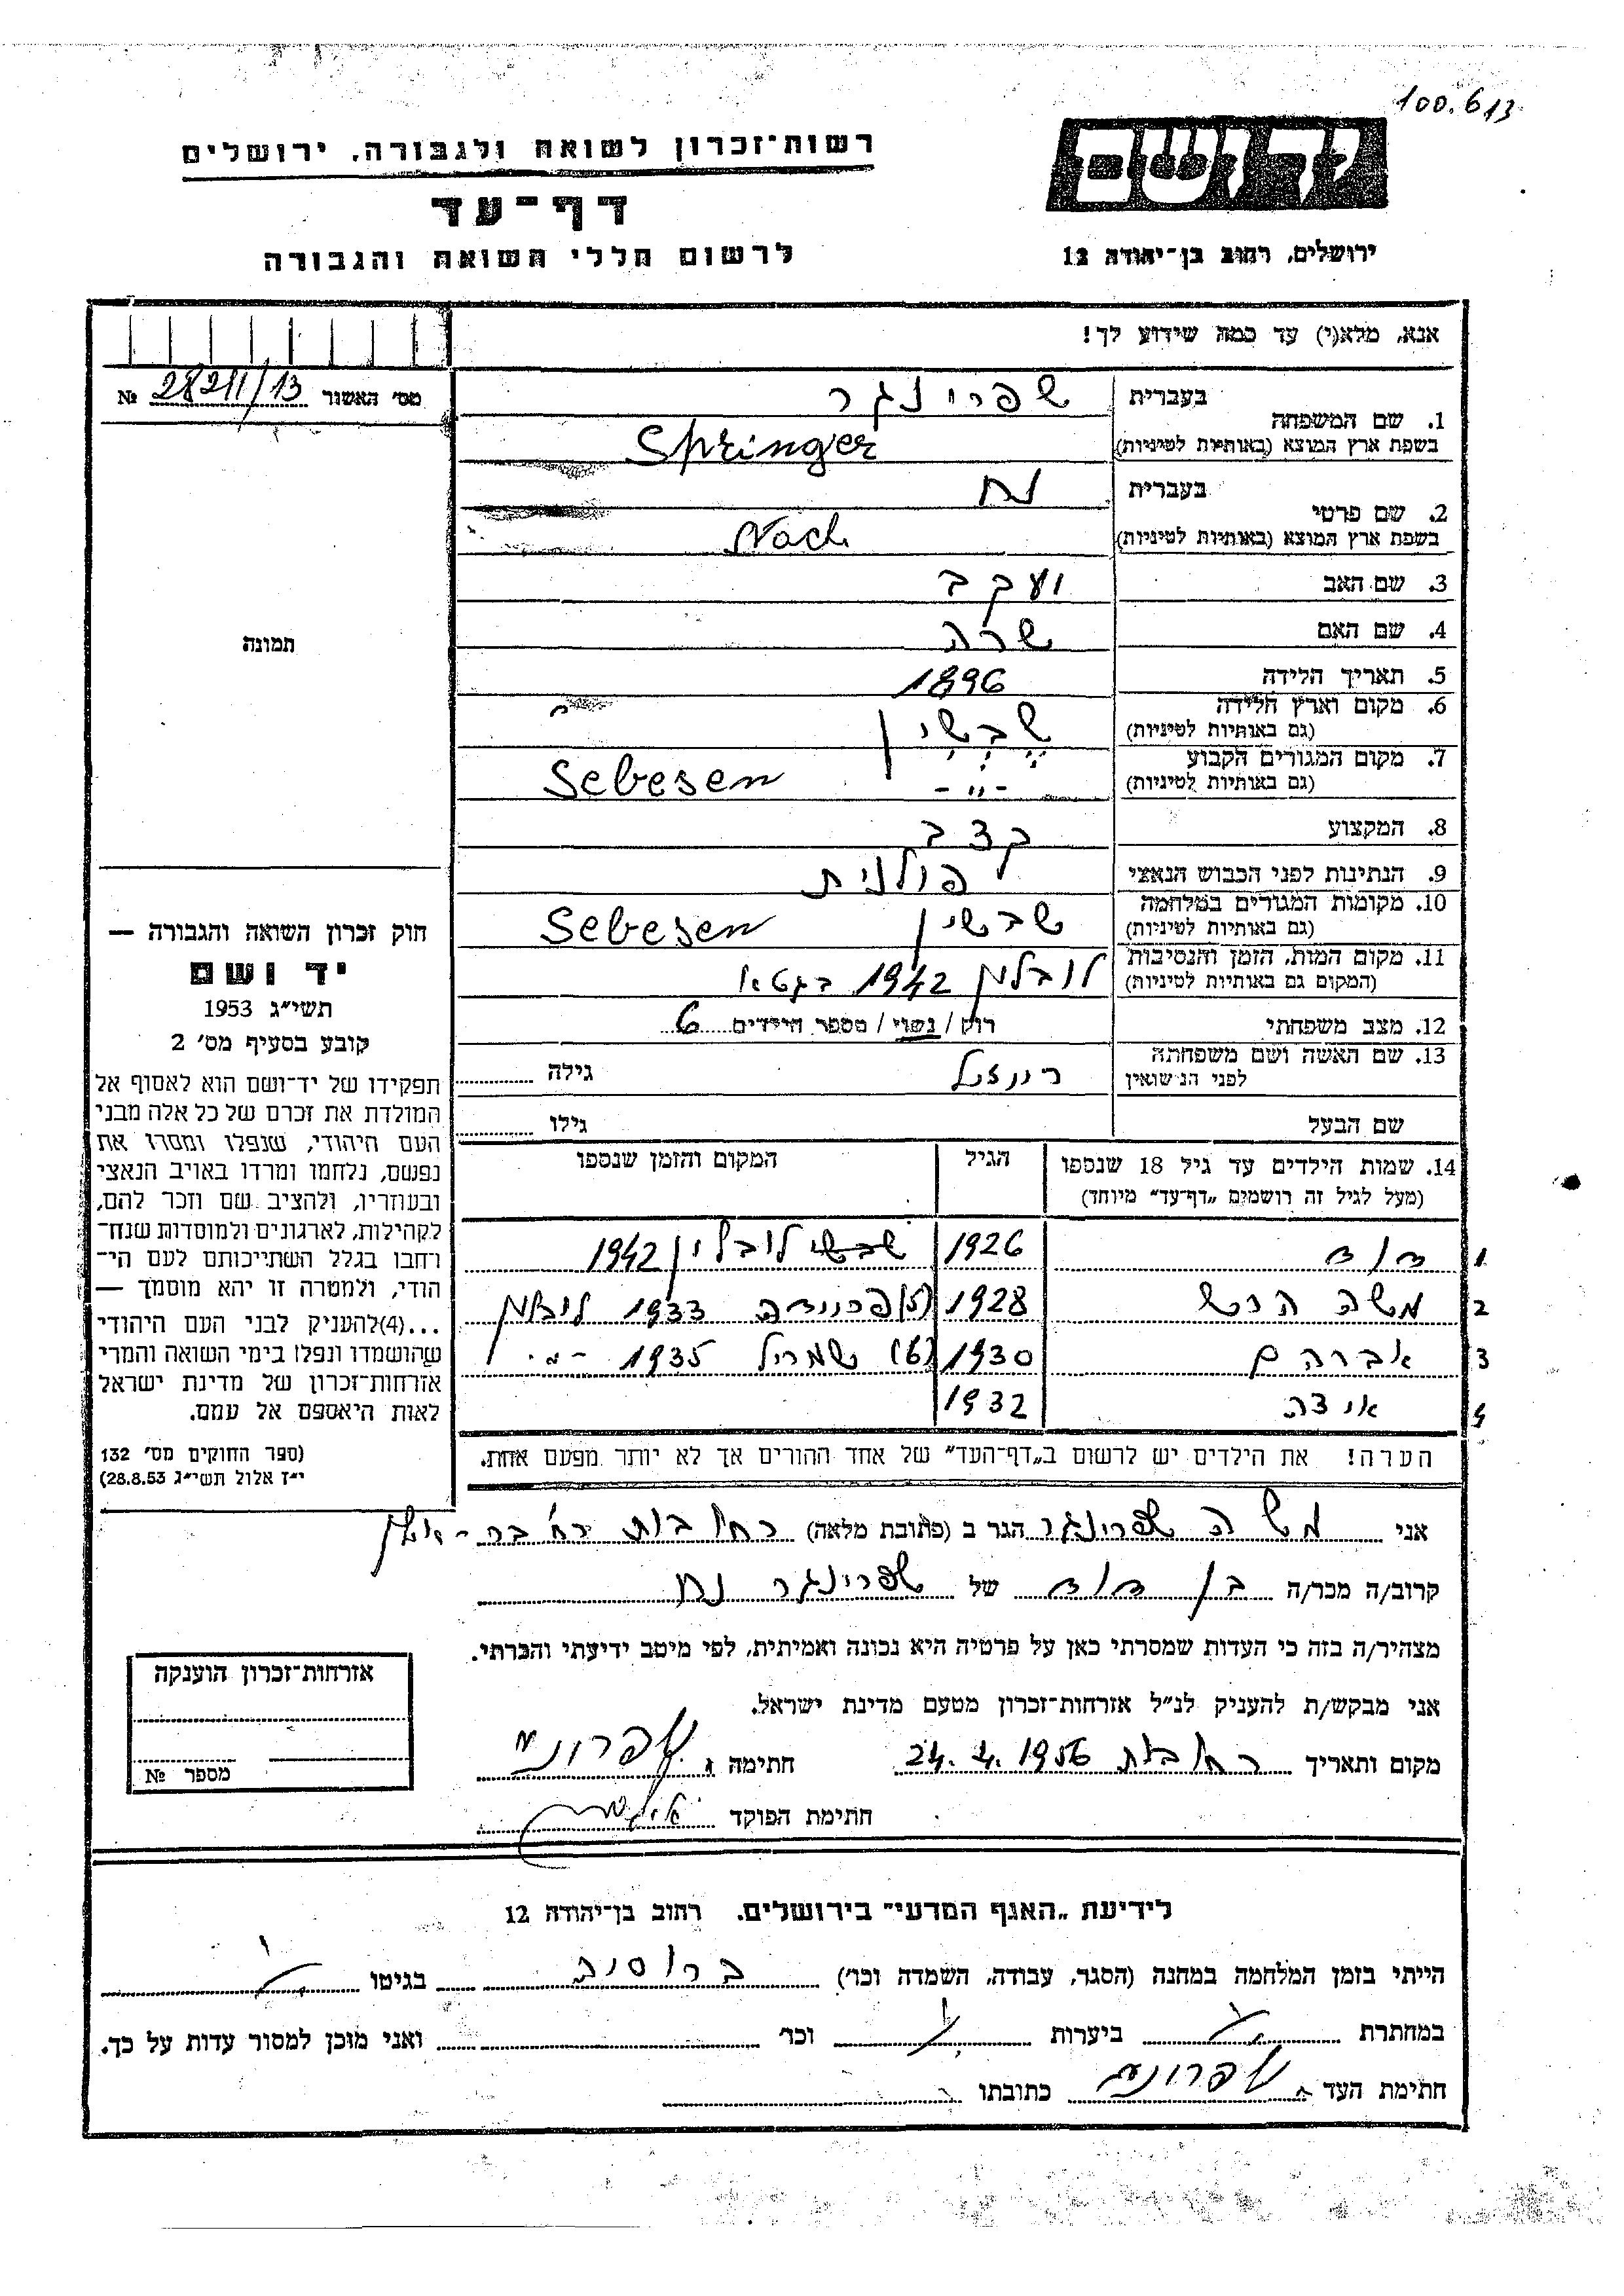 100.613
רשות־זכרון לשואה ולגבורה, ירושלים
דף־עד
לרשום חללי השואה והגבורה
יד ושם
ירושלים, רחוב בן־יהודה 12
אנא, מלא(י) עד כמה שידוע לך!
מס׳ האשור 28211/13 №
1. שם המשפחה בעברית שפרינגר
בשפת ארץ המוצא (באותיות לטיניות) Springer
2. שם פרטי בעברית נח
בשפת ארץ המוצא (באותיות לטיניות) Nach
3. שם האב יעקב
4. שם האם שרה
5. תאריך הלידה 1896
6. מקום וארץ הלידה שבשין
(גם באותיות לטיניות)
7. מקום המגורים הקבוע
(גם באותיות לטיניות) -"- Sebesen
8. המקצוע קצב
9. הנתינות לפני הכבוש הנאצי פולנית
10. מקומות המגורים במלחמה שבשין Sebesen
(גם באותיות לטיניות)
11. מקום המות, הזמן והנסיבות לובלין 1942 בגטא
(המקום גם באותיות לטיניות)
12. מצב משפחתי רוק / נשוי / מספר הילדים 6
13. שם האשה ושם משפחתה
לפני הנישואין גילה
שם הבעל גילו
14. שמות הילדים עד גיל 18 שנספו הגיל המקום והזמן שנספו
(מעל לגיל זה רושמים „דף־עד״ מיוחד)
1 דוד 1926 לובלין 1942
2 משה 1928 (5) 1933 לובלין
3 אברהם 1930 (6) 1935
4 אידה 1932
הערה! את הילדים יש לרשום ב„דף־העד״ של אחד ההורים אך לא יותר מפעם אחת.
תמונה
חוק זכרון השואה והגבורה —
יד ושם
תשי״ג 1953
קובע בסעיף מס׳ 2
תפקידו של יד־ושם הוא לאסוף אל
המולדת את זכרם של כל אלה מבני
העם היהודי, שנפלו ומסרו את
נפשם, נלחמו ומרדו באויב הנאצי
ובעוזריו, ולהציב שם וזכר להם,
לקהילות, לארגונים ולמוסדות שנח־
רחבו בגלל השתייכותם לעם הי־
הודי, ולמטרה זו יהא מוסמך —
...(4)להעניק לבני העם היהודי
שהושמדו ונפלו בימי השואה והמרי
אזרחות־זכרון של מדינת ישראל
לאות היאספם אל עמם.
(ספר החוקים מס׳ 132
י״ז אלול תשי״ג 28.8.53)
אני משה שפרינגר הגר ב (כתובת מלאה) רחובות
קרוב/ה מכר/ה בן דוד של שפרינגר נח
מצהיר/ה בזה כי העדות שמסרתי כאן על פרטיה היא נכונה ואמיתית, לפי מיטב ידיעתי והכרתי.
אני מבקש/ת להעניק לנ״ל אזרחות־זכרון מטעם מדינת ישראל.
מקום ותאריך רחובות 24.4.1956 חתימה
חתימת הפוקד
אזרחות־זכרון הוענקה
מספר №
לידיעת „האגף המדעי״ בירושלים. רחוב בן־יהודה 12
הייתי בזמן המלחמה במחנה (הסגר, עבודה, השמדה וכר׳) ברוסיה בגיטו
במחתרת ביערות וכר׳ ואני מוכן למסור עדות על כך.
חתימת העד כתובתו